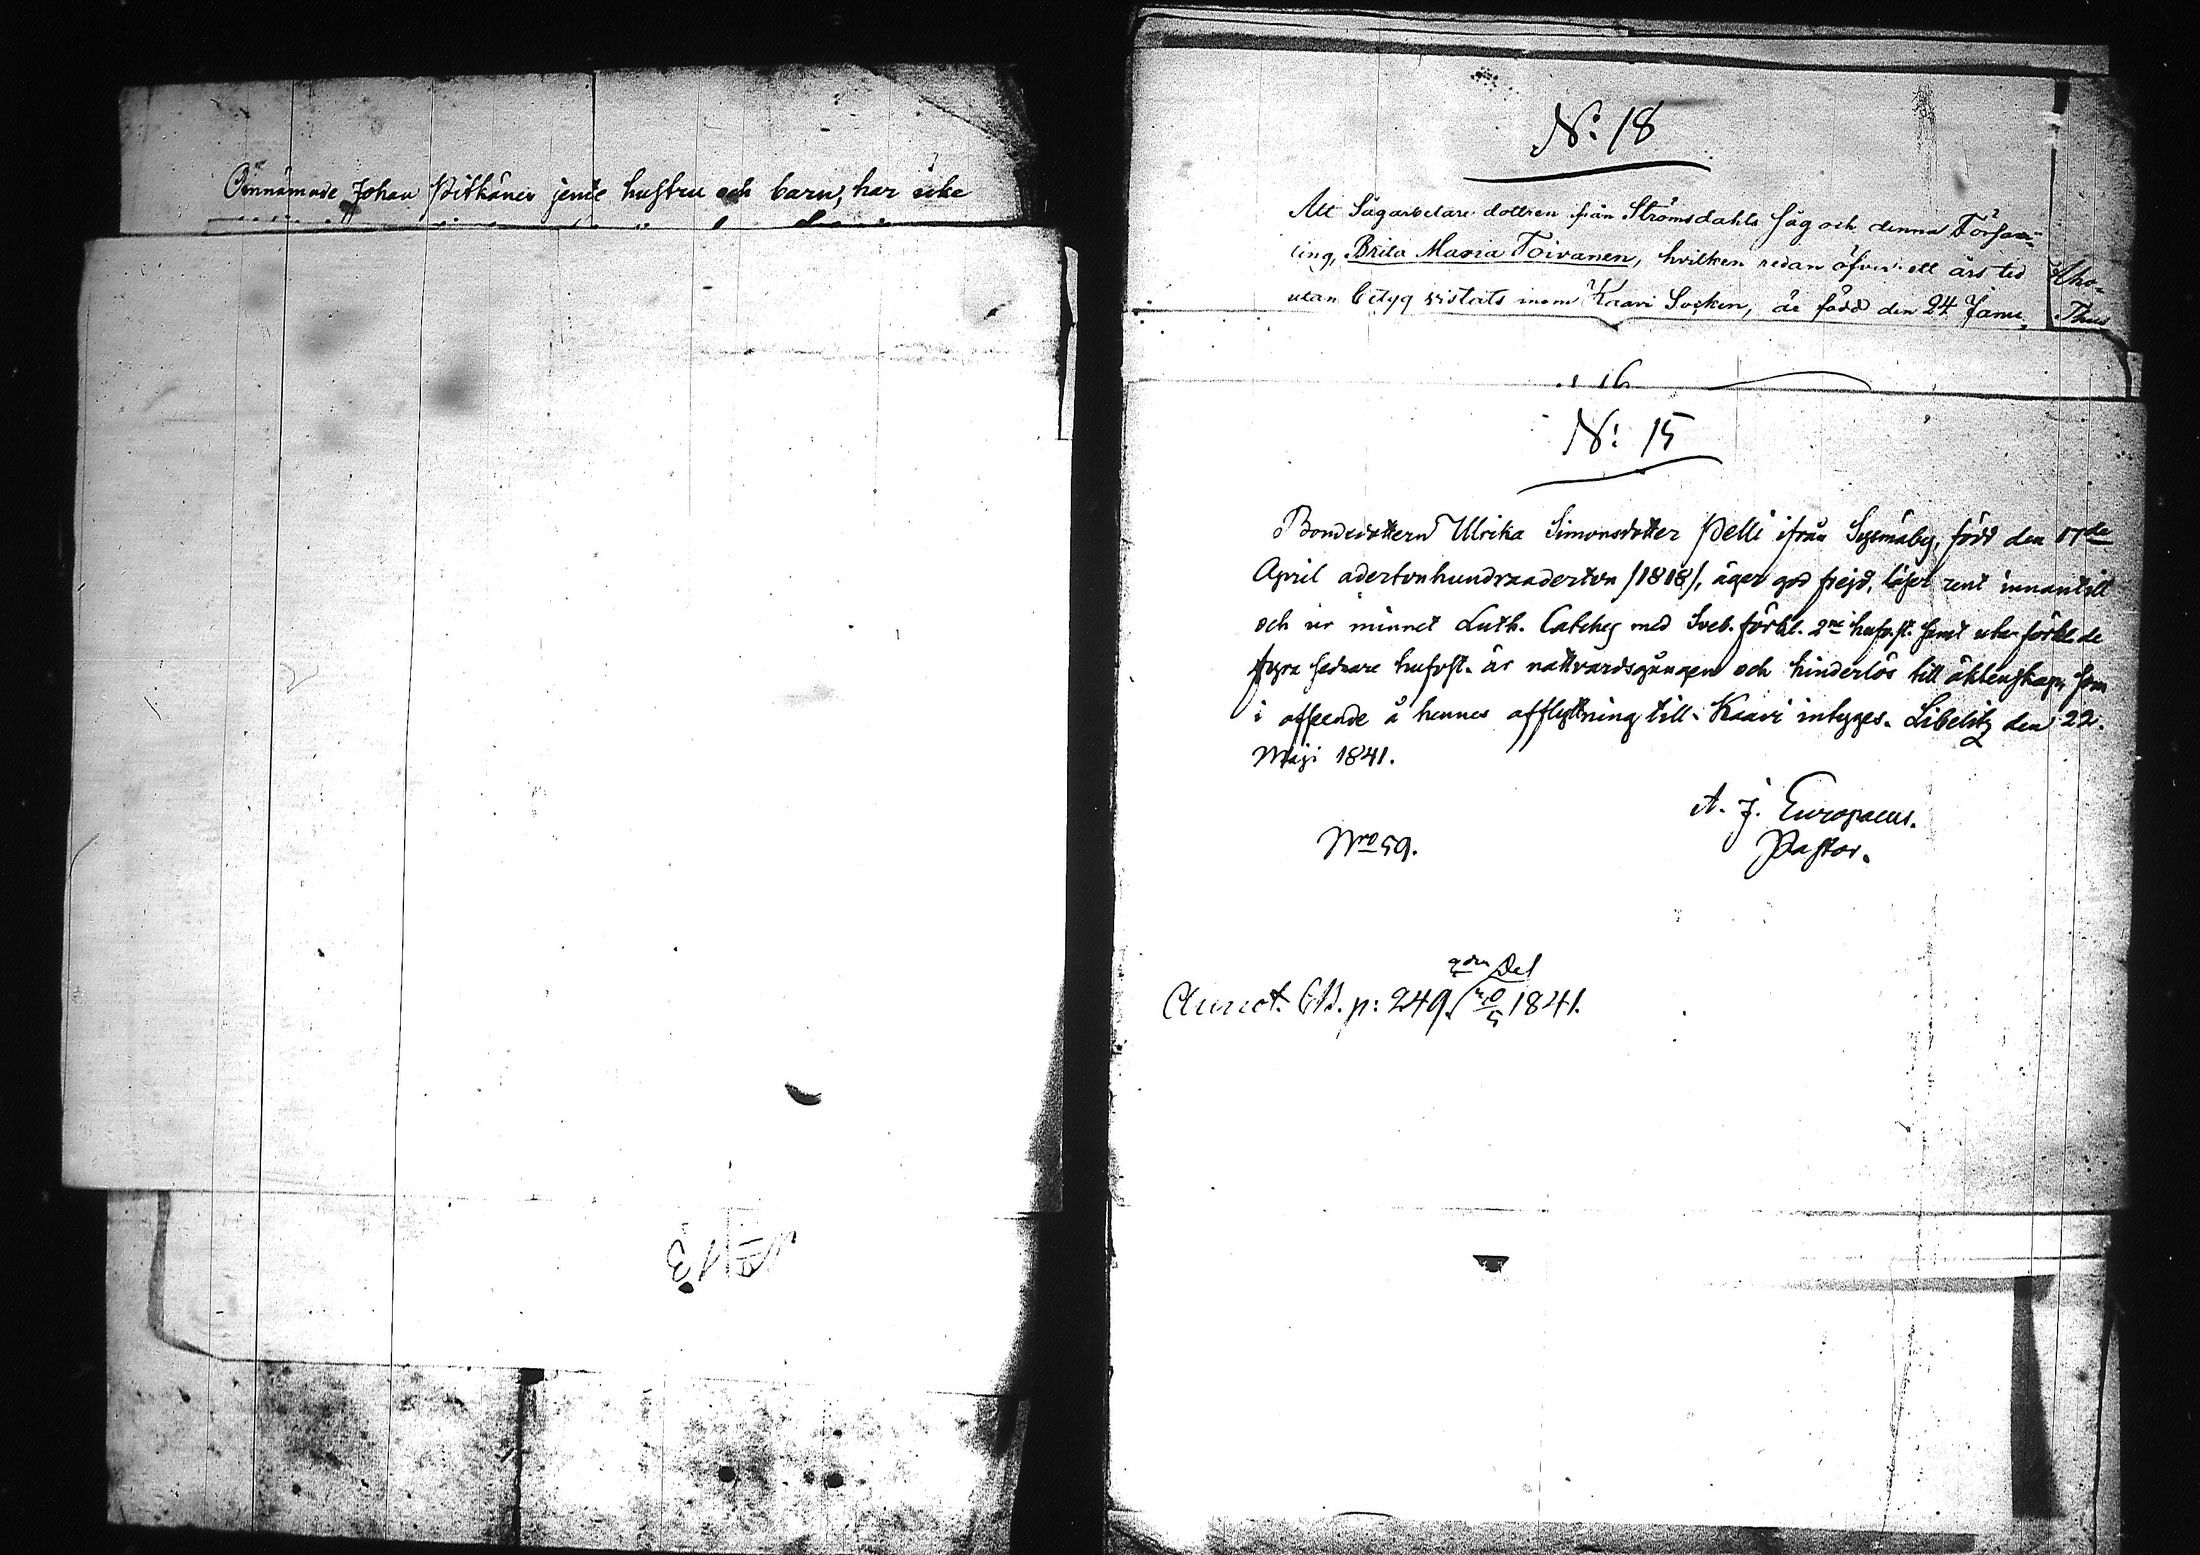 Omnämnde Johan Pitkänen jemte hustru och barn, har icke
N: 18
Att Sågarbetare dottren från Strömsdahls såg och denna Försam-
ling, Brita Maria Toivanen, hvilken redan öfver ett års tid
utan betyg vistats inom Kaavi Socken, är född den 24 Janu
16
N: 15
Bondedottern Ulrika Simonsdotter Pelli ifrån Sysmäby, född den
April adertonhundraaderton /1818/, äger god frejd, läser rent innantill
och ur minnet Luth. Cateches med Sveb. förkl. 2ne hufvst. samt utan förkl. de
fyra sednare hufvst. är nattvardsgången och hinderlös till äktenskap, som
i afseende å hennes afflyttning till Kaavi intygas. Libelitz den 22.
Maji 1841.
A. J. Europaeus.
Pastor.
Nro 59.
Del
Annot. p: 249. 1841.